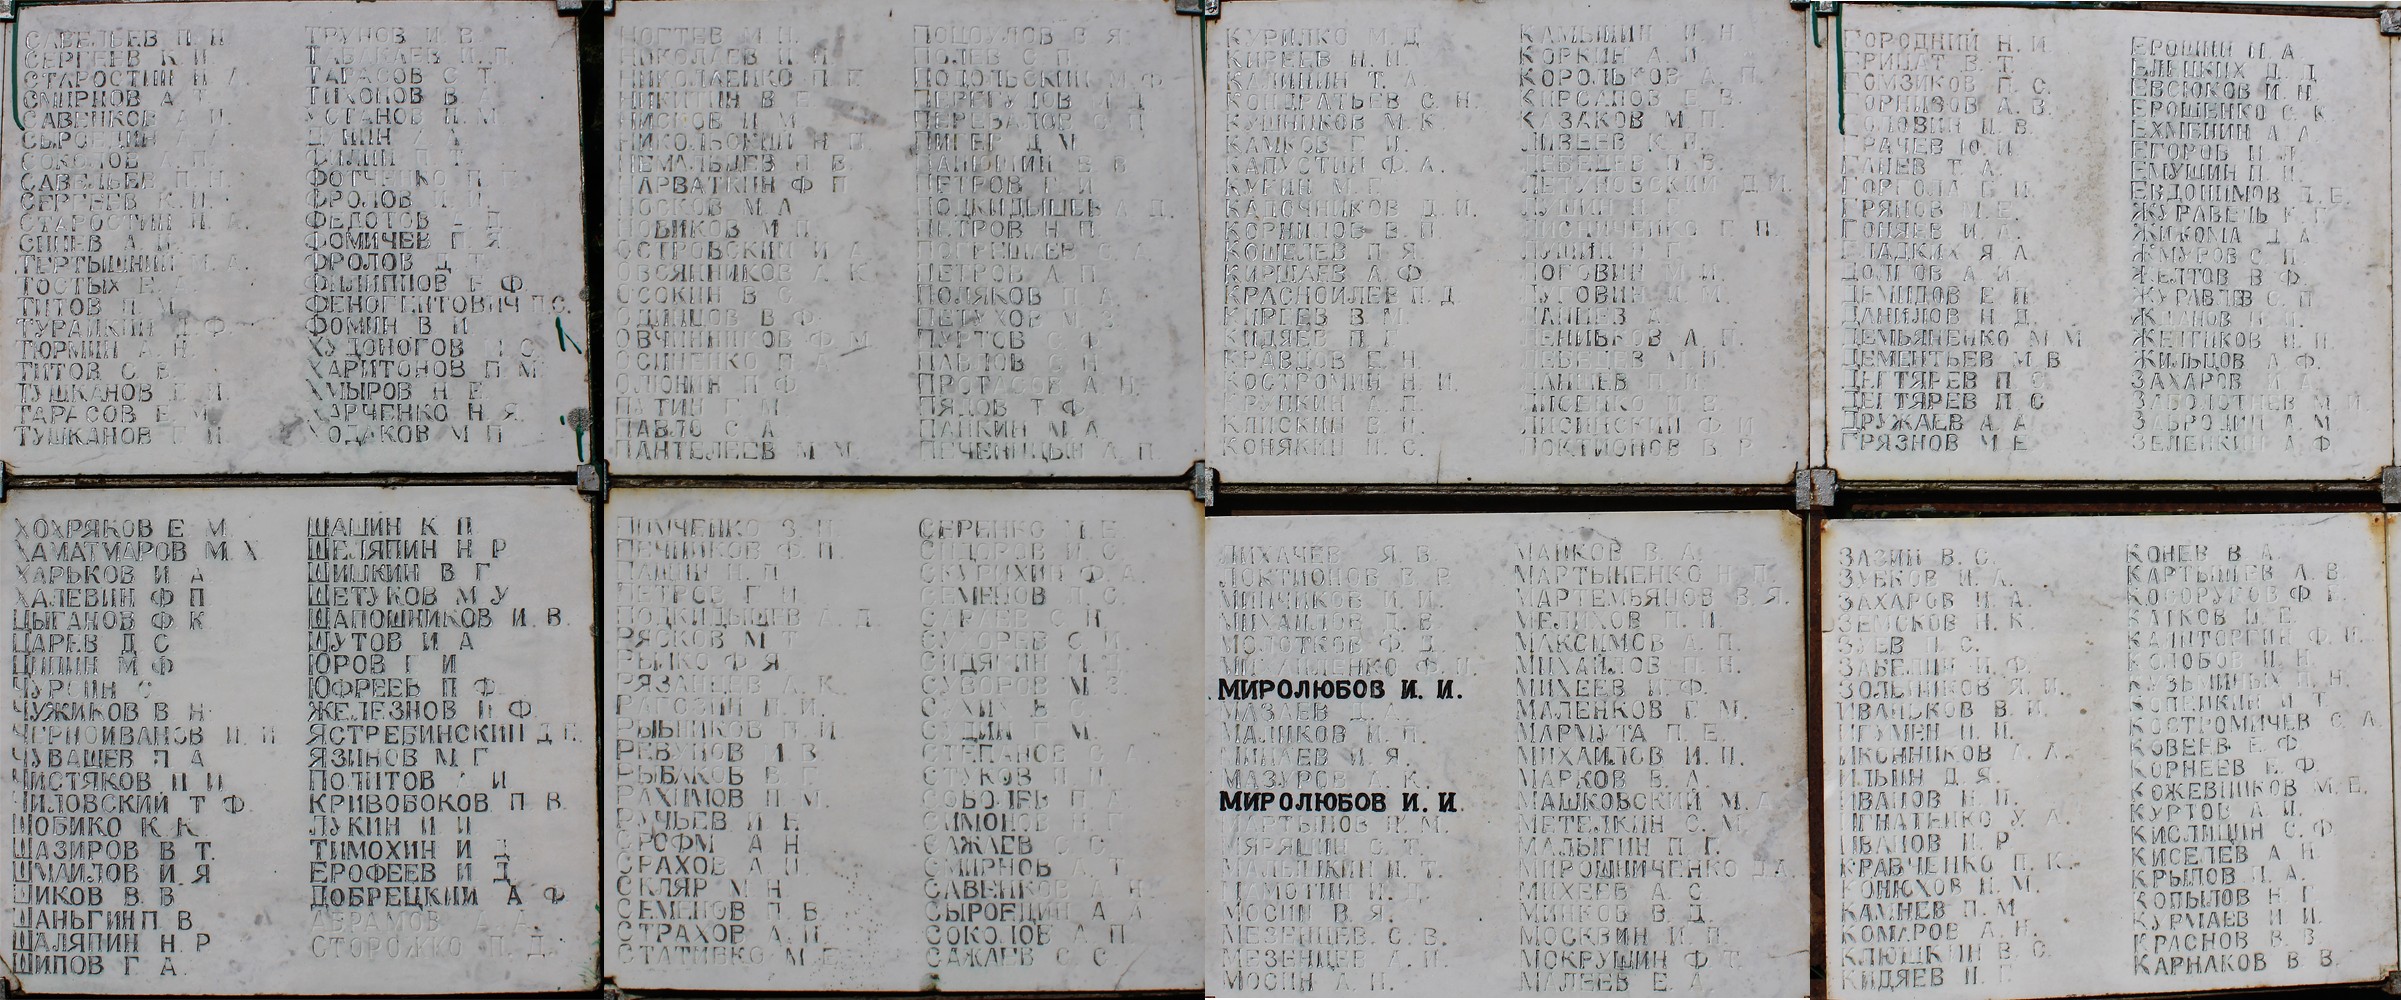 САВЕЛЬЕВ П. И.
СЕРГЕЕВ К. И.
СТАРОСТИН И. А.
СМИРНОВ А. Т.
САВЕНКОВ А. И.
СЫРОЕДИН А. А.
СОКОЛОВ А. П.
САВЕЛЬЕВ П. И.
СЕРГЕЕВ К. И.
СТАРОСТИН И. А.
СИНЕВ А. И.
ТЕРТЫШНИЙ М. А.
ТОСТЫХ
ТИТОВ И. М.
ТУРАЙКИН Д. Ф.
ТЮРМИН А. Н.
ТИТОВ С. В.
ТУШКАНОВ Г. И.
ТАРАСОВ Е. М.
ТУШКАНОВ Г. И.
ТРУНОВ И. В.
ТАБАКАЕВ И. П.
ТАРАСОВ С. Т.
ТИХОНОВ В. А.
УСТАНОВ И. М.
ФИЛИН П. Т.
ФОТЧЕНКО П. Г.
ФРОЛОВ И. И.
ФЕДОТОВ А. П.
ФОМИЧЕВ Г. Я.
ФРОЛОВ Д. Т.
ФИЛИППОВ Е. Ф.
ФЕНОГЕНТОВИЧ П. С.
ФОМИН В. И.
ХУДОНОГОВ М. С.
ХАРИТОНОВ П. М.
ХМЫРОВ Н. Е.
ХАРЧЕНКО Н. Я.
ХОДАКОВ М. П.
НОГТЕВ М. Н.
НИКОЛАЕВ И. И.
НИКОЛАЕНКО П. Е.
НИКИТИН В. Е.
НИСКОВ И. М.
НЕМАЛЬЦЕВ П. В.
НАРВАТКИН Ф. П.
НОСКОВ М. А.
НОВИКОВ М. П.
ОСТРОВСКИЙ И. А.
ОВСЯННИКОВ А. К.
ОСОКИН В. С.
ОДИНЦОВ В. Ф.
ОВЧИННИКОВ Ф. М.
ОСИПЕНКО П. А.
ОЛЮНИН П. Ф.
ПАТИН Г. М.
ПАВЛО С. А.
ПАНТЕЛЕЕВ М. М.
ПОЦОУЛОВ В. Я.
ПОЛЕВ С. П.
ПОДОЛЬСКИЙ М. Ф.
ПЕРЕГУДОВ И. Д.
ПЕРЕВАЛОВ С. Ц.
ПИГЕР Д. М.
ПАНЮШИН В. В.
ПЕТРОВ Г. И.
ПОДКИДЫШЕВ А. Д.
ПЕТРОВ Н. П.
ПОГРЕШАЕВ С. А.
ПЕТРОВ А. П.
ПОЛЯКОВ П. А.
ПЕТУХОВ М. З.
ПУРТОВ С. Ф.
ПАВЛОВ С. Н.
ПРОТАСОВ А. Н.
ПЯЛОВ Т. Ф.
ПАНКИН М. А.
ПЕЧЕНИЦЫН А. П.
КУРИЛКО М. Д.
КИРЕЕВ И. И.
КАЛИНИН Т. А.
КОНДРАТЬЕВ С. Н.
КУШНИКОВ М. К.
КАМКОВ Г. И.
КАПУСТИН Ф. А.
КУРИН М. Е.
КАДОЧНИКОВ Д. И.
КОРНИЛОВ В. П.
КОШЕЛЕВ П. Я.
КИРШАЕВ А. Ф.
КРАСНОИЛЕВ П. Д.
КИРЕЕВ В. М.
КИДЯЕВ П. Г.
КРАВЦОВ Е. Н.
КОСТРОМИН Н. И.
КРУПКИН А. П.
КЛИСКИН В. И.
КОНЯКИН П. С.
КАМЫШИН И. Н.
КОРКИН А. И.
КОРОЛЬКОВ А. П.
КИРСАНОВ Е. В.
КАЗАКОВ М. П.
ЛИВЕЕВ К. Е.
ЛЕБЕДЕВ П. В.
ЛЕТУНОВСКИЙ Д. М.
ЛУШИН Н. Г.
ЛИСНИЧЕНКО Г. П.
ЛУШИН Н. Г.
ЛОГОВИН М. И.
ЛУГОВИН И. М.
ЛЕНИВКОВ А. П.
ЛЕБЕДЕВ М. Н.
ЛИСЕНКО П. В.
ЛИСИНСКИЙ Ф. И.
ЛОКТИОНОВ В. Р.
ГОРОДНИЙ Н. И.
ГРИЦАТ В. Т.
ГОМЗИКОВ П. С.
ГОРНИЗОВ А. В.
ГОЛОВИН И. В.
ГРАЧЕВ Ю. И.
ГАНЕВ Т. А.
ГОРГОЛА Г. И.
ГРЯНОВ М. Е.
ГОНЯЕВ И. А.
ГЛАДКИХ Я. А.
ДОЛГОВ А. И.
ДЕМИДОВ Е. П.
ДАНИЛОВ Н. Д.
ДЕМЬЯНЕНКО М. М.
ДЕМЕНТЬЕВ М. В.
ДЕГТЯРЕВ П. С.
ДЕГТЯРЕВ П. С.
ДРУЖАЕВ А. А.
ГРЯЗНОВ М. Е.
ЕРОШИН И. А.
ЕЛЕЦКИХ Д. Д.
ЕВСЮКОВ М. Н.
ЕРОШЕНКО С. К.
ЕХМЕНИН А. А.
ЕГОРОВ Н. Я.
ЕМУШИН П. Н.
ЕВДОКИМОВ Д. Е.
ЖУРАВЕЛЬ К. Г.
ЖИКОМА Д. А.
ЖМУРОВ С. П.
ЖЕЛТОВ В. Ф.
ЖУРАВЛЕВ С. П.
ЖДАНОВ И. И.
ЖЕНТИКОВ И. Н.
ЖИЛЬЦОВ А. Ф.
ЗАХАРОВ И. А.
ЗАБОЛОТНЕВ М. И.
ЗАБРОДИН А. М.
ЗЕЛЕНКИН А. Ф.
ХОХРЯКОВ Е. М.
ХАМАТМАРОВ М. Х.
ХАРЬКОВ И. А.
ХАЛЕВИН Ф. П.
ЦЫГАНОВ Ф. К.
ЦАРЕВ Д. С.
ЦИПИН М. Ф.
ЧУРСИН С.
ЧУЖИКОВ В. Н.
ЧЕРНОИВАНОВ И. Н.
ЧУВАШЕВ П. А.
ЧИСТЯКОВ И. И.
ЧИЛОВСКИЙ Т. Ф.
ШОБИКО К. К.
ШАЗИРОВ В. Т.
ШМАИЛОВ И. Я.
ШИКОВ В. В.
ШАНЬГИН П. В.
ШАЛЯПИН Н. Р.
ШИПОВ Г. А.
ШАШИН К. П.
ШЕЛЯПИН Н. Р.
ШИШКИН В. Г.
ШЕТУКОВ М. У.
ШАПОШНИКОВ И. В.
ШУТОВ И. А.
ЮРОВ Г. И.
ЮФРЕЕВ П. Ф.
ЖЕЛЕЗНОВ И. Ф.
ЯСТРЕБИНСКИЙ Д. Г.
ЯЗИНОВ М. Г.
ПОЛИТОВ А. И.
КРИВОБОКОВ П. В.
ЛУКИН И. И.
ТИМОХИН И. Д.
ЕРОФЕЕВ И. Д.
ДОБРЕЦКИЙ А. Ф.
АВРАМОВ А. А.
СТОРОЖКО П. Д.
ПЕЧНИКОВ Ф. П.
ПАШИН Н. П.
ПЕТРОВ Г. Н.
ПОДКИДЫШЕВ А. Д.
РЯСКОВ М. Т.
РЫЙКО Ф. Я.
РЯЗАНЦЕВ А. К.
РАГОЗИН П. И.
РЫБНИКОВ П. И.
РЕВУНОВ И. В.
РЫБАКОВ В. Г.
РАХИМОВ Н. М.
РУЧЬЕВ И. Е.
СРОФМ А. Н.
СРАХОВ А. И.
СКЛЯР М. Н.
СЕМЕНОВ П. В.
СТРАХОВ А. И.
СТАТИВКО М. Е.
СЕРЕНКО И. Е.
СИДОРОВ И. С.
СКУРИХИН Ф. А.
СЕМЕНОВ Л. С.
САРАЕВ С. Н.
СУХОРЕВ С. И.
СИДЯКИН И. Д.
СУВОРОВ М. З.
СУХИХ В. С.
СУДИН Г. М.
СТЕПАНОВ С. А.
СТУКОВ П. И.
СОБОЛЕВ П. А.
СИМОНОВ Н. Г.
САЖАЕВ С. С.
СМИРНОВ А. Т.
САВЕНКОВ А. Н.
СЫРОЕДИН А. А.
СОКОЛОВ А. П.
САЖАЕВ С. С.
ЛИХАЧЕВ Я. В.
ЛОКТИОНОВ В. Р.
МИНЧИКОВ И. И.
МИХАЙЛОВ Д. В.
МОЛОТКОВ Ф. Д.
МИХАЙЛЕНКО Ф. И.
МИРОЛЮБОВ И. И.
МАЗАЕВ Д. А.
МАЛИКОВ И. П.
МИНАЕВ И. Я.
МАЗУРОВ А. К.
МИРОЛЮБОВ И. И.
МАРТЫНОВ И. М.
МЯРЯШИН С. Т.
МАЛЫШКИН И. Т.
МАМОТИН И. Д.
МОСИН В. Я.
МЕЗЕНЦЕВ С. В.
МЕЗЕНЦЕВ А. И.
МОСИН А. И.
МАЙКОВ В. А.
МАРТЫНЕНКО Н. П.
МАРТЕМЬЯНОВ В. Я.
МЕЛИХОВ П. П.
МАКСИМОВ А. П.
МИХАЙЛОВ П. Н.
МИХЕЕВ И. Ф.
МАЛЕНКОВ Г. М.
МАРМУТА П. Е.
МИХАЙЛОВ И. П.
МАРКОВ В. А.
МАШКОВСКИЙ М. А.
МЕТЕЛКИН С. М.
МАЛЫГИН П. Г.
МИРОШНИЧЕНКО Д. А.
МИХЕЕВ А. С.
МИНКОВ В. Д.
МОСКВИН И. П.
МОКРУШИН Ф. Т.
МАЛЕЕВ Е. А.
ЗАЗИН В. С.
ЗУБКОВ И. А.
ЗАХАРОВ И. А.
ЗЕМСКОВ Н. К.
ЗУЕВ П. С.
ЗАБЕЛИН И. Ф.
ЗОЛЬНИКОВ Я. И.
ИВАНЬКОВ В. И.
ИГУМЕН П. И.
ИКОННИКОВ А. А.
ИЛЬИН Д. Я.
ИВАНОВ Н. П.
ИГНАТЕНКО У. А.
ИВАНОВ И. Р.
КРАВЧЕНКО П. К.
КОНЮХОВ И. М.
КАМНЕВ П. М.
КОМАРОВ А. Н.
КЛЮШКИН В. С.
КИДЯЕВ П. Г.
КОНЕВ В. А.
КАРТЫШЕВ А. В.
КОКОРУКОВ Ф. Г.
КАТКОВ И. Е.
КАПИТОРГИН Ф. И.
КОЛОБОВ И. Н.
КУЗЬМИНЫХ П. Н.
КОПЕЙКИН И. Т.
КОСТРОМИЧЕВ С. А.
КОВЕЕВ Е. Ф.
КОРНЕЕВ Е. Ф.
КОЖЕВНИКОВ М. Е.
КУРТОВ А. И.
КИСЛИЦИН С. Ф.
КИСЕЛЕВ А. Н.
КРЫЛОВ П. А.
КОПЫЛОВ Н. Г.
КУРМАЕВ И. И.
КРАСНОВ В. В.
КАРНАКОВ В. В.